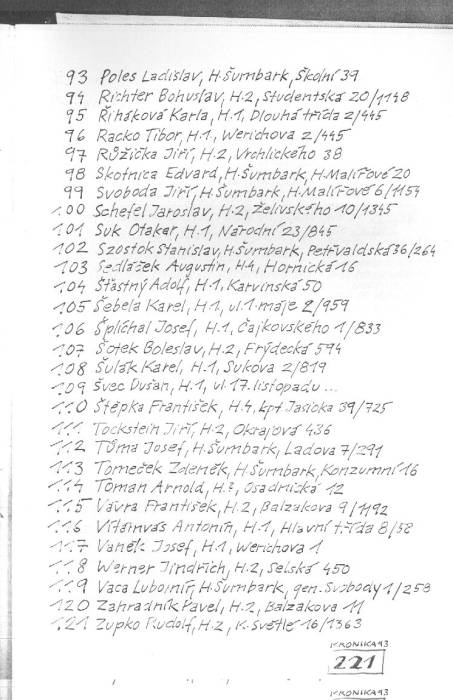 93 Poles Ladislav, H.Šumbark, Školní 39
94 Richter Bohuslav, H.2, Studentská 20/1148
95 Řiháková Karla, H.1, Dlouhá třída 2/445
96 Racko Tibor, H.1, Werichova 2/445
97 Růžička Jiří, H.2, Vrchlického 38
98 Skotnica Edvard, H.Šumbark, H.Malířové 20
99 Svoboda Jiří, H.Šumbark, H.Malířové 6/1154
100 Schefel Jaroslav, H.2, Želivského 10/1345
101 Suk Otakar, H.1, Národní 23/845
102 Szostok Stanislav, H.Šumbark, Petřvaldská 36/264
103 Sedláček Augustin, H.4, Hornická 16
104 Šťastný Adolf, H.1, Karvinská 50
105 Šebela Karel, H.1, ul.1.máje 2/959
106 Šplíchal Josef, H.1, Čajkovského 1/833
107 Šotek Boleslav, H.2, Frýdecká 594
108 Šulák Karel, H.1, Sukova 2/819
109 Švec Dušan, H.1, ul.17.listopadu ...
110 Štěpka František, H.4, kpt Jasioka 39/725
111 Tockstein Jiří, H.2, Okrajová 436
112 Tůma Josef, H.Šumbark, Ladova 7/291
113 Tomeček Zdeněk, H.Šumbark, Konzumní 16
114 Toman Arnold, H.?, Osadnická 12
115 Vávra František, H.2, Balzakova 9/1192
116 Antonín, H.1, Hlavní třída 8/58
117 Vaněk Josef, H.1, Werichova 1
118 Werner Jindřich, H.2, Selská 450
119 Vaca Lubomír, H.Šumbark, gen.Svobody 1/258
120 Zahradník Pavel, H.2, Balzakova 11
121 Zupko Rudolf, H.2, K.Světlé 16/1363
KRONIKA 93
221
KRONIKA 93